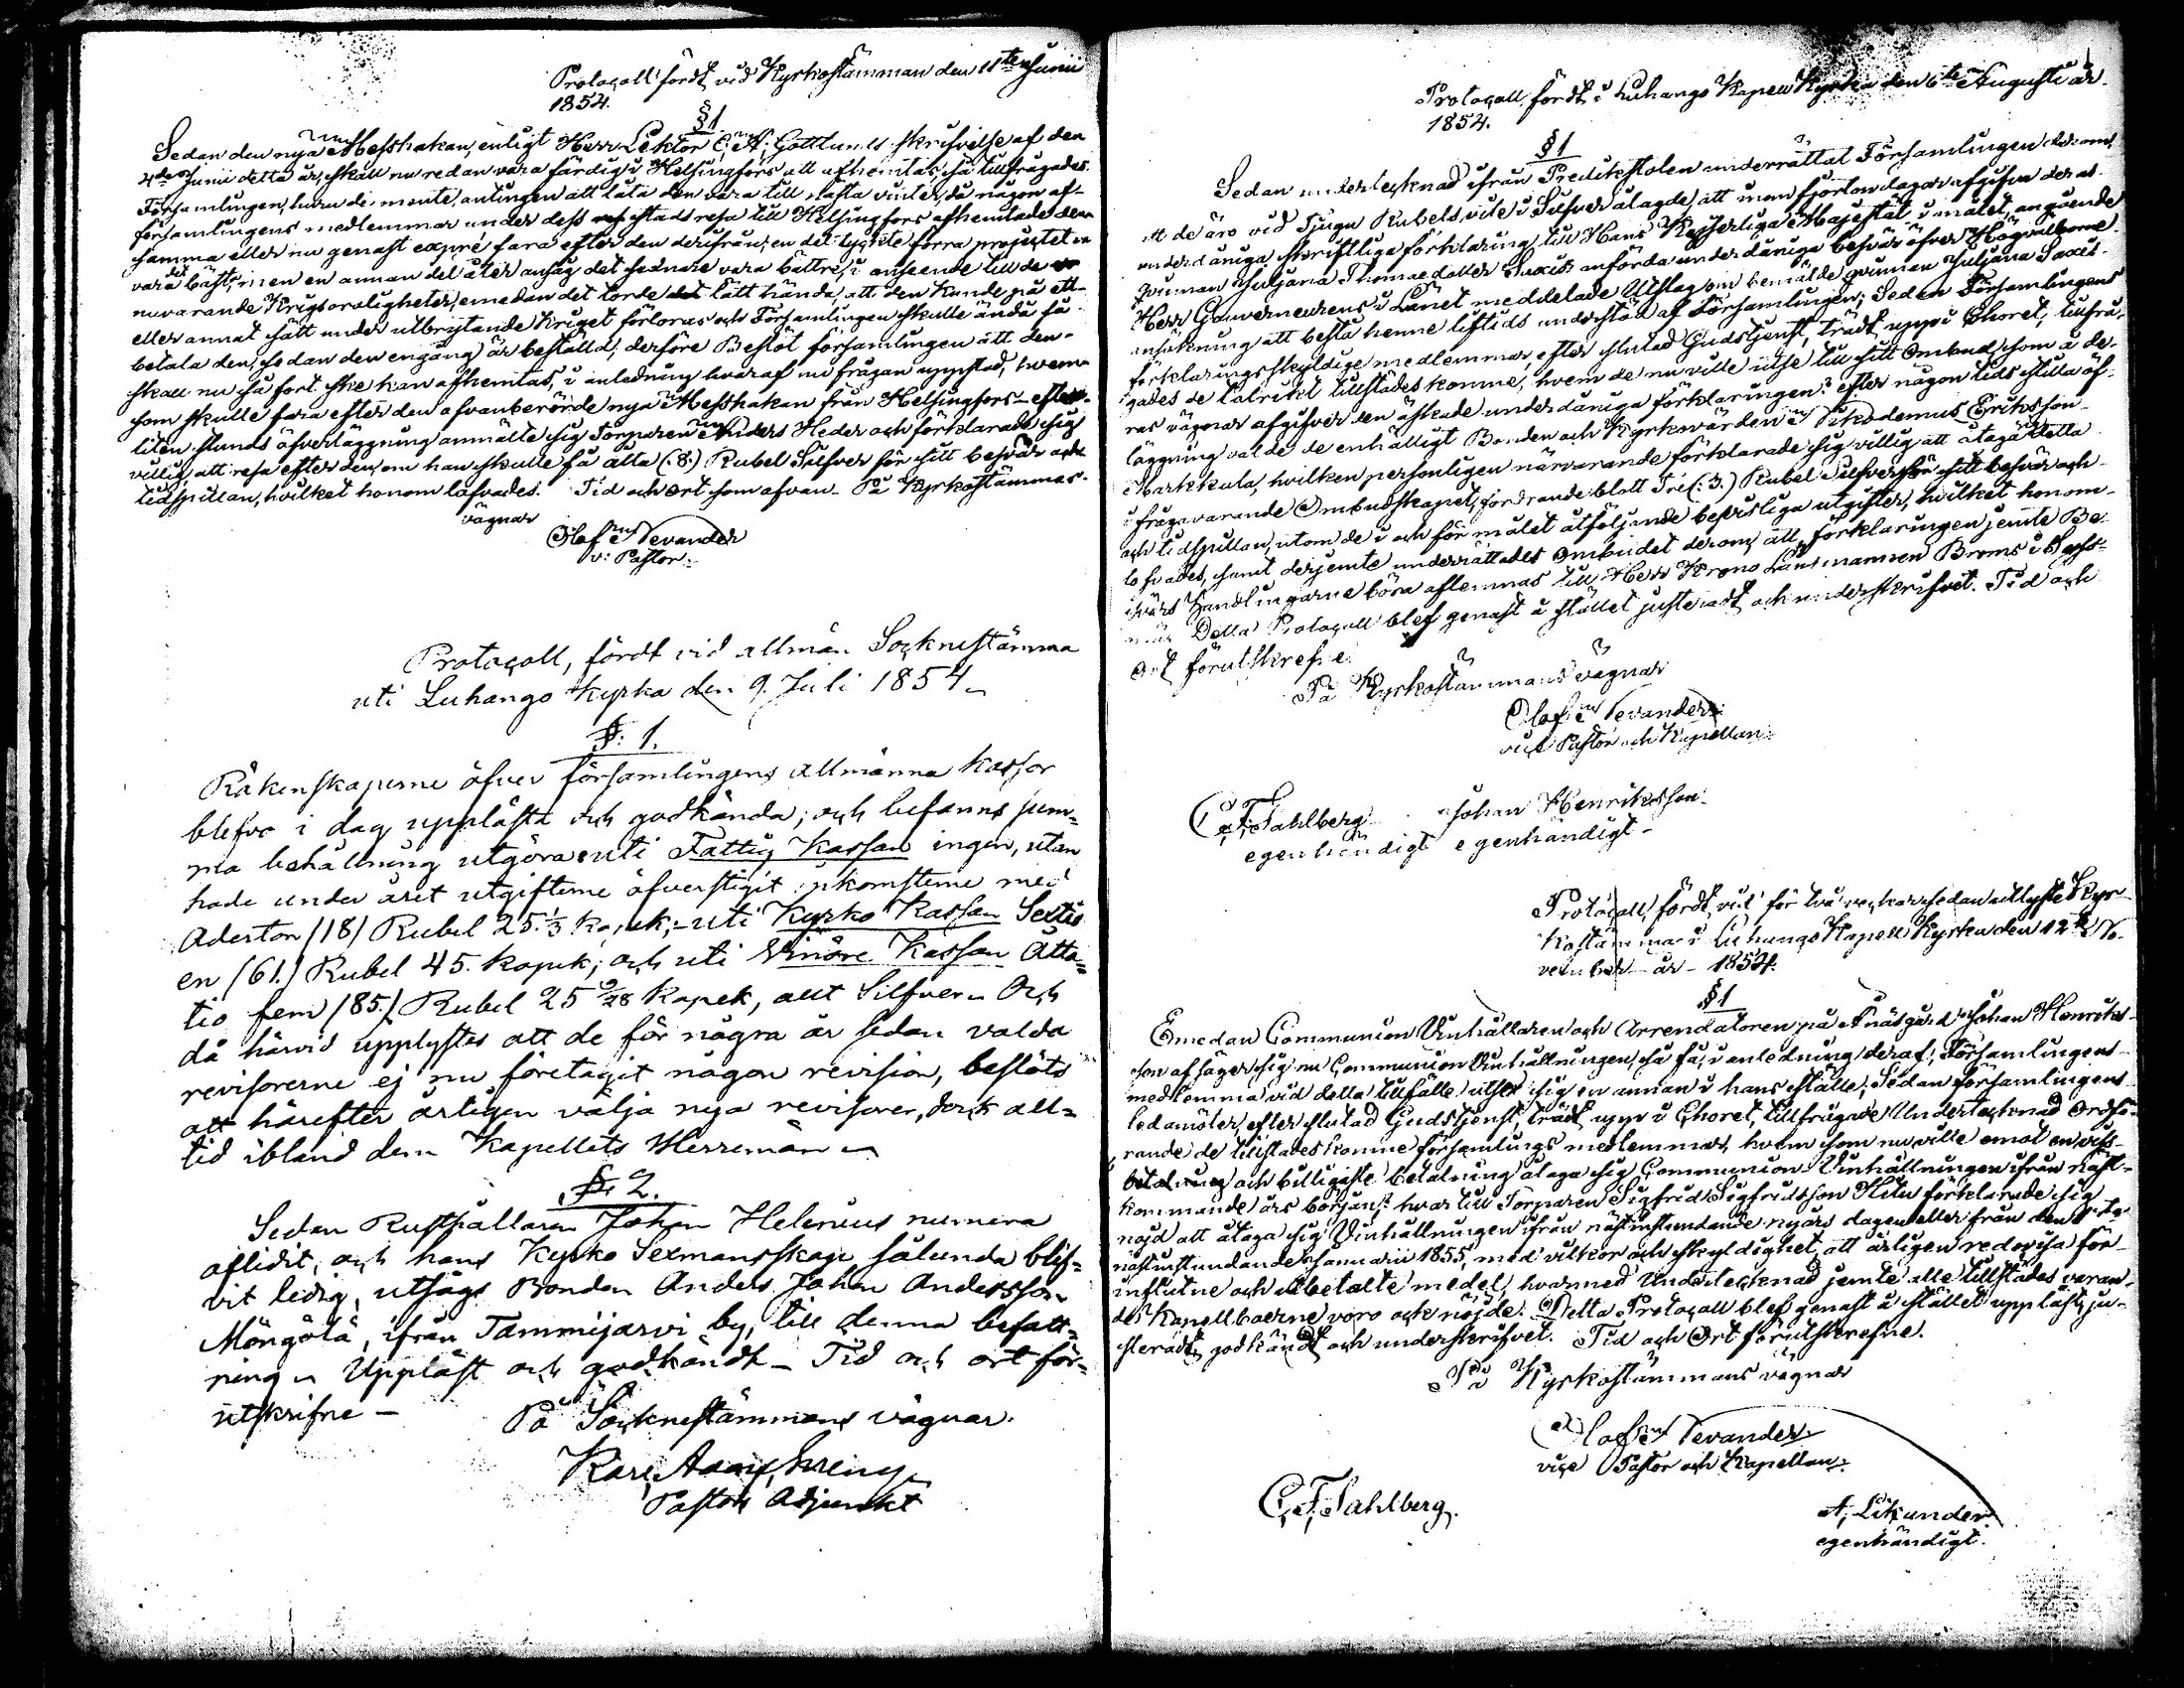 Protocoll fördt vid Kyrkostämman den 11te Junii
1854.
§1
Sedan den nya Messhakan, enligt Herr Lektor C: A: Gottlunds skrifvelse af den
4de Junii detta år, skall nu redan vara färdig i Helsingfors att afhemtas, så tillfrågades
Församlingen, huru de mente, antingen att låta den vara till nästa vinter, då någon af
församlingens medlemmar under dess resa till Helsingfors afhemtade den
samma eller nu genast expre fara efter den derifrån; en del tyckte förra projectet
vara det bäst, men en annan del åter ansåg det sednare vara bättre, i anseende till de
nuvarande Krigsoroligheter, emedan det torde lätt hända, att den kunde på ett
eller annat sätt under utbrytande Kriget förloras och Församlingen skulle ändå få
betala den, sedan den engång är beställd, derföre Beslöt församlingen att den
skall nu så fort ske kan afhemtas, i anledning hvaraf nu frågan uppstod, hvem
som skulle fara efter den ofvanberörde nya Messhakan från Helsingfors efter
liten stunds öfverläggning anmälte sig Torparen Anders Heder och förklarade sig
villig att resa efter den, om han skulle få åtta (:8:) Rubel Silfver för sitt besvär och
tidspillan, hvilket honom lofvades. Tid och ort som ofvan. På Kyrkostämmas
vägnar
Olof Nevander
v: Pastor.
Protocoll, fördt vid allmän Socknestämma
uti Luhango Kyrka den 9. Juli 1854
§: 1.
Räkenskaperne öfver församlingens allmänna kassor
blefvo i dag upplästa och godkända; och befanns sum=
ma behållning utgöra: uti Fattig Kassan ingen, utan
hade under året utgifterne öfverstigit inkomsterne med
Aderton (18) Rubel 25 1/3 kopek; uti Kyrko Kassan Sextio
en (61.) Rubel 45. kopek; och uti Vinöre Kassan Åtta=
tio fem (85.) Rubel 25 9/28 kopek, allt Silfver. Och
då härvid upplystes att de för några år sedan valda
revisorerne ej nu företagit någon revision, beslöts
att härefter årligen välja nya revisorer, dock all=
tid ibland dem Kapellets Herremän
§. 2.
Sedan Rusthållaren Johan Helenius numera
aflidit, och hans Kyrko Sexmansskap sålunda blif=
vit ledig, utsågs Bonden Anders Johan Andersson
Möngölä, ifrån Tammijärvi by, till denna befatt=
ning. Uppläst och godkändt. Tid och ort för=
utskrifne
På Socknestämmans vägnar.
Karl Adolf
Pastors Adjunkt
Protocoll, fördt i Luhango Kapell Kyrka den 6te Augusti år
1854.
§1
Sedan undertecknad ifrån Predikstolen underrättat Församlingen derom,
att de äro vid Tjugu Rubels vite i Silfver ålagde, att inom fjorton dagar afgifva deras
underdåniga skriftliga förklaring till Hans Kejserliga Majestät i målet angående
qvinnan Juljana Thomædotter Saxits anförda underdåniga besvär öfver Högvälborne
Herr Gouverneurens i Länet meddelade Utslag om bemälde qvinnan Juljana Saxits
ansökning att bestå henne liftids understöd af Församlingen; Sedan Församlingens
förklaringsskyldige medlemmar, efter slutad Gudstjenst, trädt upp i Choret, tillfrå=
gades de talrikt tillstädes komne, hvem de nu ville utse till sitt Ombud som å de=
ras vägnar afgifver den äskade underdåniga förklaringen? efter någon tids stilla öf=
läggning valde de enhälligt Bonden och Kyrkovärden Nikodemus Eriksson
Markkula, hvilken personligen närvarande förklarade sig villig att åtaga detta
ifrågavarande Ombudskapet, fordrande blott Tre (:3:) Rubel Silfver för sitt besvär och
och tidspillan, utom de i och för målet åtföljande bevisliga utgifter, hvilket honom
lofvades, samt derjemte underrättades Ombudet derom, att förklaringen jemte Be=
svärs Handlingarne böra aflemnas till Herr Krono Länsmannen Broms i
Detta Protocoll blef genast å stället justeradt och underskrifvet. Tid och
Ort förutskrefne.
På Kyrkostämmans vägnar
Olof Nevander
vice Pastor och Kapellan
C. F. Tahlberg Johan Henriksson
egenhändigt egenhändigt
Protocoll, fördt vid för två veckor sedan utlyste Kyr=
kostämma i Luhango Kapell Kyrka den 12te No=
vember år 1854.
§1
Emedan Communion Vinhållaren och Arrendatoren på Näsgård Johan Henriks=
son afsäger sig nu Communion Vinhållningen, så få, i anledning deraf, Församlingens
medlemma vid detta tillfälle utse sig en annan i hans ställe; Sedan Församlingens
ledamöter, efter slutad Gudstjenst, trädt upp i Choret, tillfrågade Undertecknad Ordfö=
rande de tillstädes komne församlings medlemmar, hvem som nu ville emot en viss
betalning och billigaste betalning åtaga sig Communion Vinhållningen ifrån näst=
kommande års början? hvartill Torparen Sigfrid Sigfridsson Hitu förklarade sig
nöjd att åtaga sig Vinhållningen ifrån nästinstundande nyårs dagen eller från den
nästinstundande Januarii 1855, med vilkor och skyldighet, att årligen redovisa för
influtne och utbetalte medel, hvarmed Undertecknad jemte alle tillstädes varan=
des Kapellboerne voro ock nöjde. Detta Protocoll blef genast å stället uppläst, ju=
steradt, godkändt och underskrifvet. Tid och Ort förutskrefne.
På Kyrkostämmans vägnar
Olof Nevander
vice Pastor och Kapellan
C. F. Tahlberg. A. Likander
egenhändigt.